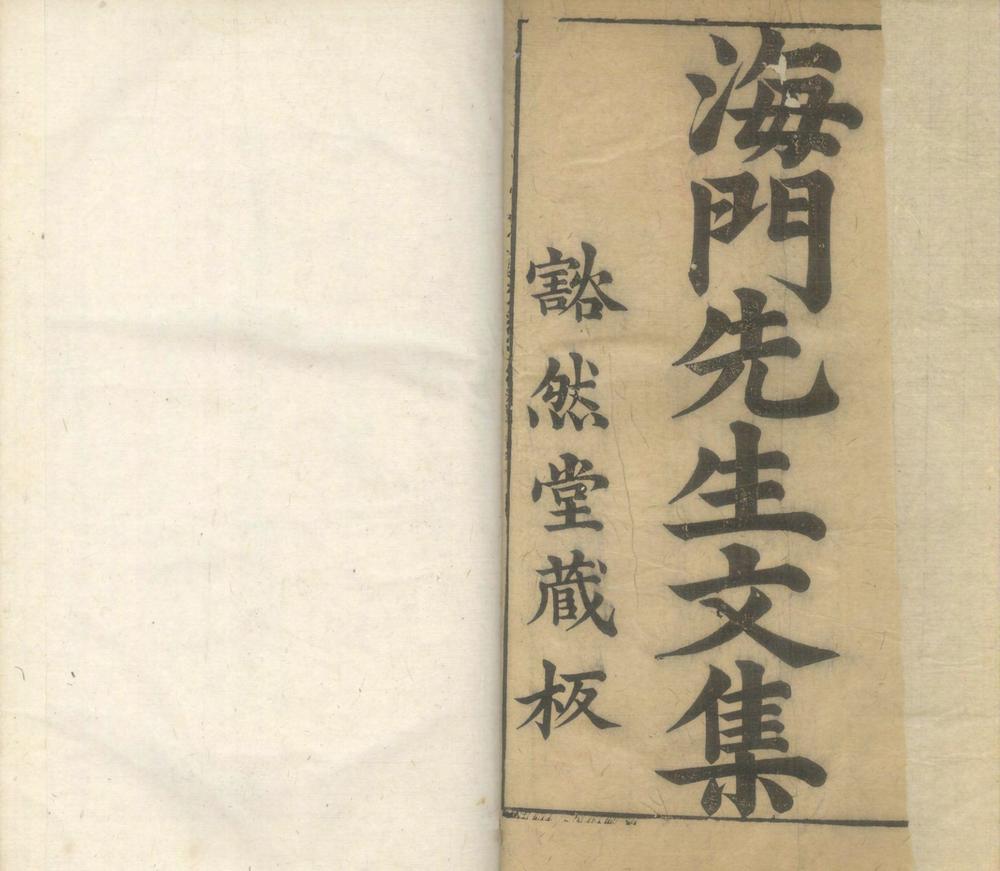 海門先生文集
豁然堂蔵板